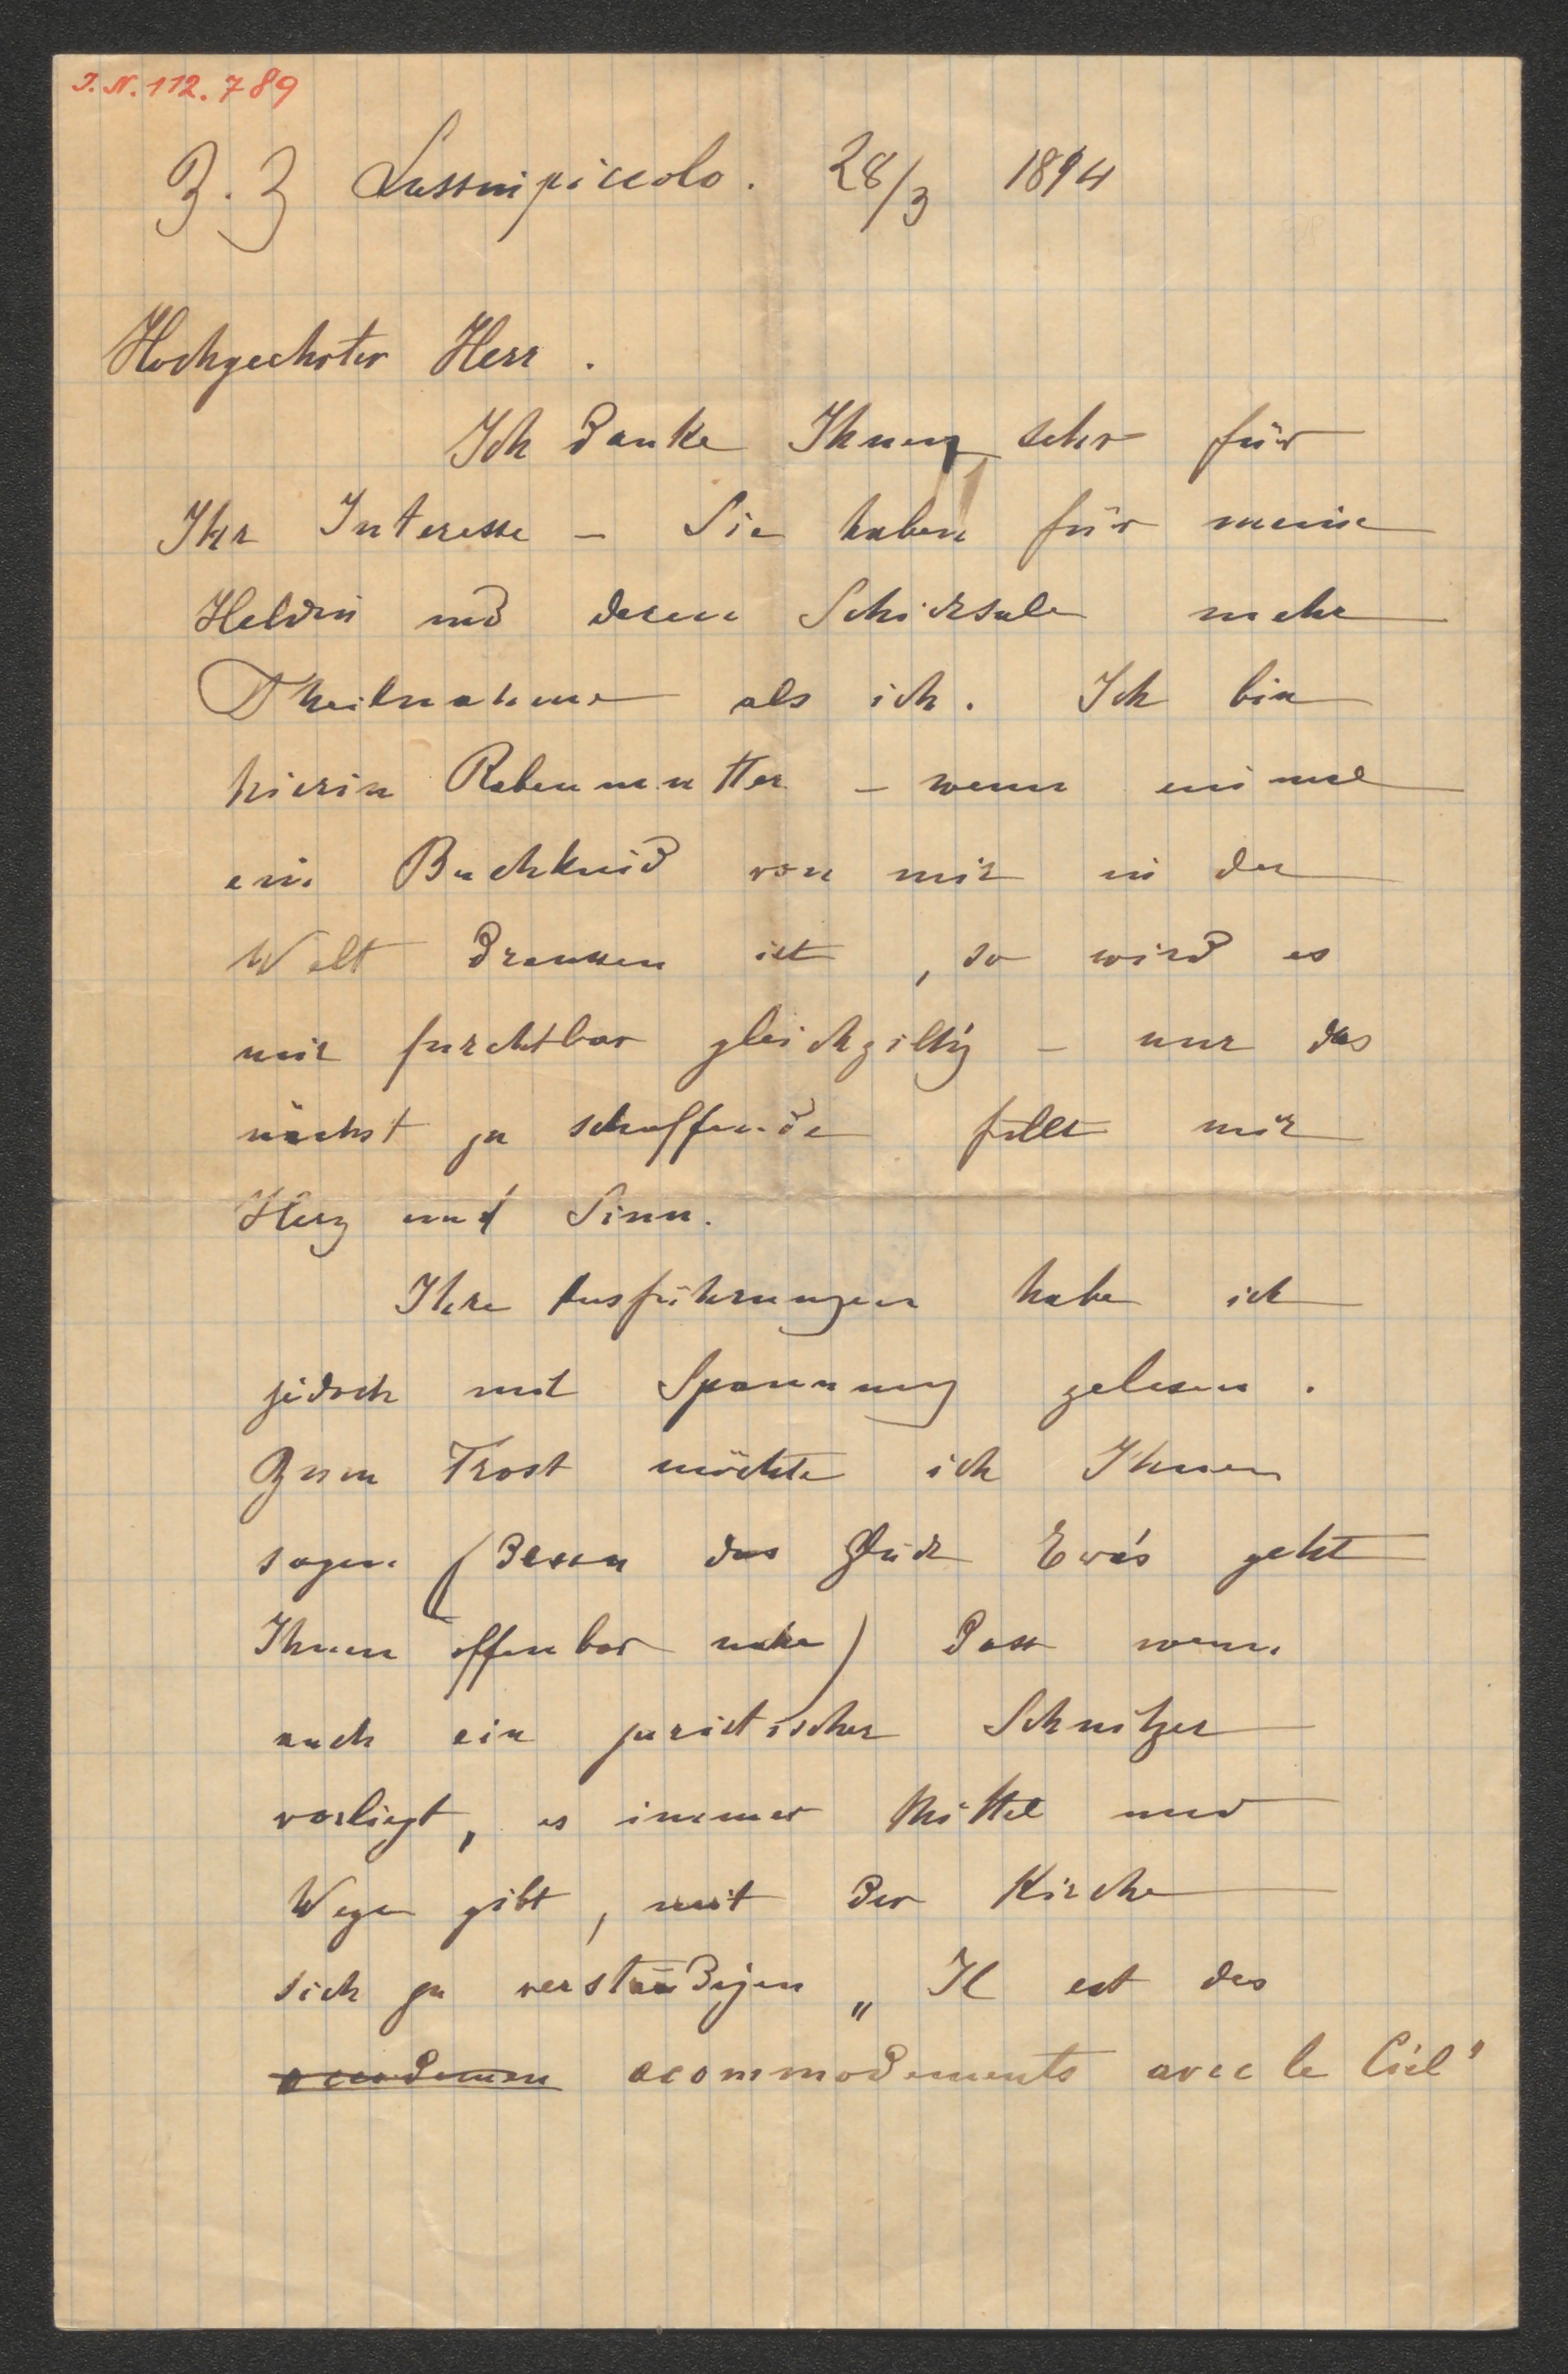 I.N. 112.789
Z. Z Lussinpiccolo. 28/3 1894
Hochgeehrter Herr.
Ich danke Ihnen sehr für
Ihr Interesse – Sie haben für meine
Heldin und deren Schicksale mehr
Theilnahme als ich. Ich bin
hierin Rabenmutter – wenn einmal
ein Buchkind von mir in der
Welt draussen ist, so wird es
mir furchtbar gleichgiltig – nur das
nächst zu schaffende füllt mir
Herz und Sinn.
Ihre Ausführungen habe ich
jedoch mit Spannung gelesen.
Zum Trost möchte ich Ihnen
sagen (denn das Glück Eva's geht
Ihnen offenbar nahe) dass wenn
auch ein juristischer Schnitzer
vorliegt, es immer Mittel und
Wege gibt, mit der Kirche
sich zu verständigen „Il est des
acommodements avec le Ciel"